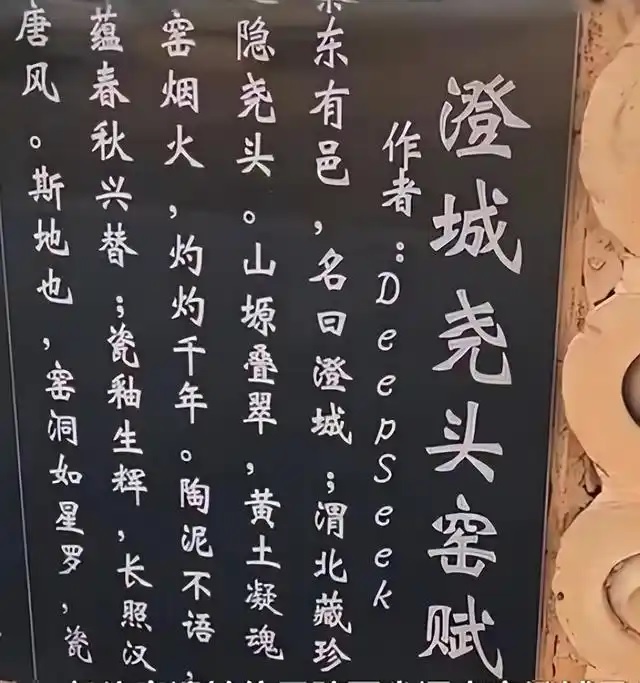 澄城尧头窑赋
作者:DeepSeek
东有邑,名曰澄城;渭北藏珍
隐尧头。山塬叠翠,黄土凝魂
窑烟火,灼灼千年。陶泥不语,
蕴春秋兴替;瓷釉生辉,长照汉
唐风。斯地也,窑洞如星罗,瓷